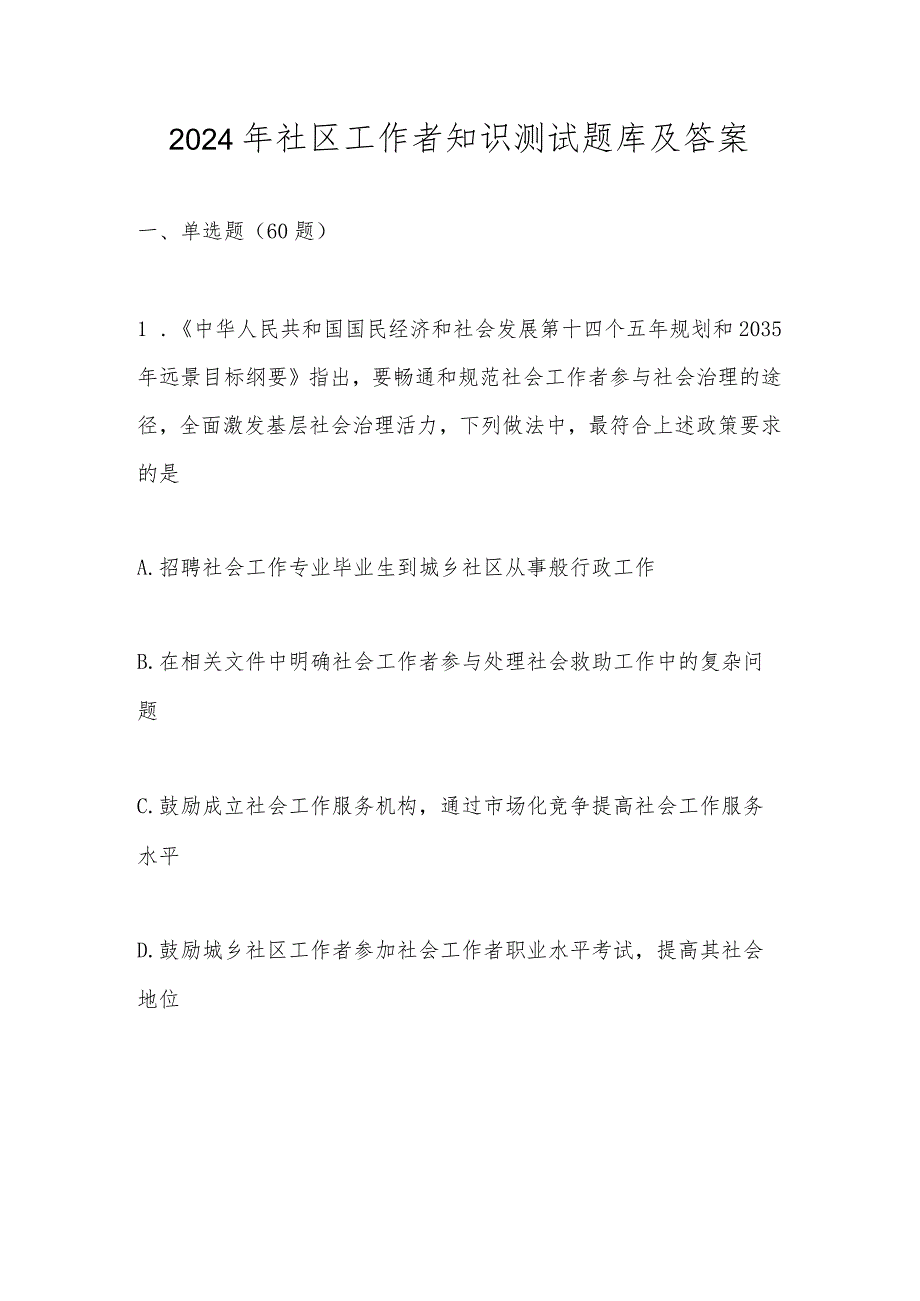 2024年社区工作者知识测试题库及答案
一、单选题（60题）
1 .《中华人民共和国国民经济和社会发展第十四个五年规划和2035
年远景目标纲要》指出，要畅通和规范社会工作者参与社会治理的途
径，全面激发基层社会治理活力，下列做法中，最符合上述政策要求
的是
A.招聘社会工作专业毕业生到城乡社区从事般行政工作
B.在相关文件中明确社会工作者参与处理社会救助工作中的复杂问
题
C.鼓励成立社会工作服务机构，通过市场化竞争提高社会工作服务
水平
D.鼓励城乡社区工作者参加社会工作者职业水平考试，提高其社会
地位